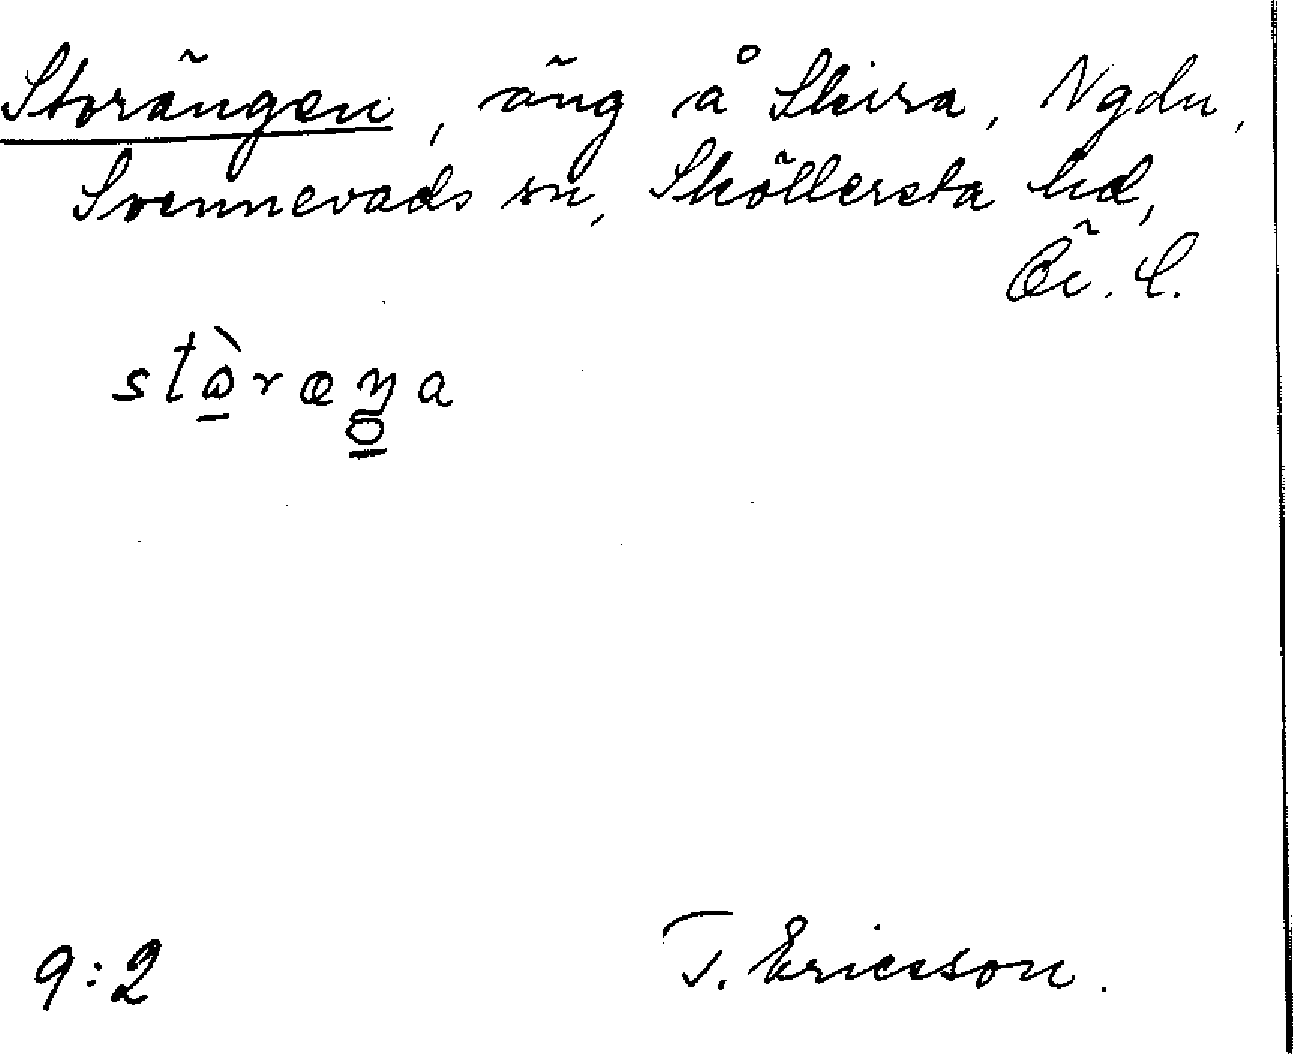 Storängen, äng å Skira, Ngdn,
Svennevads sn, Sköllersta hd,
Ör. L.
9:2
T. Ericsson.